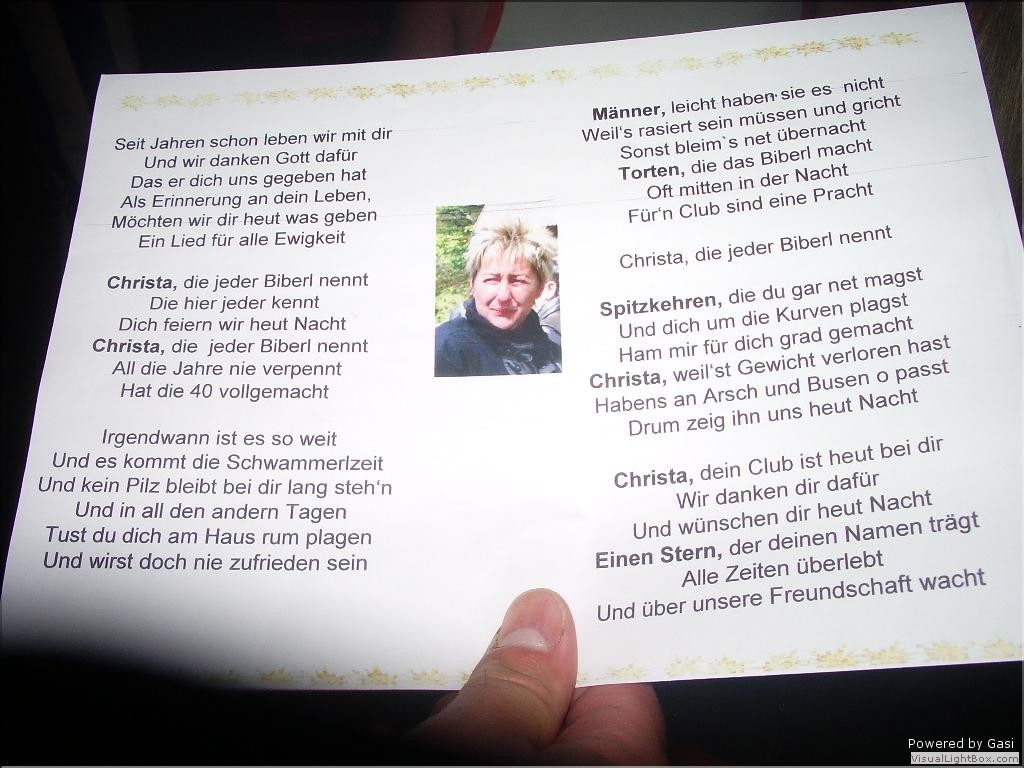 Seit Jahren schon leben wir mit dir
Und wir danken Gott dafür
Das er dich uns gegeben hat
Als Erinnerung an dein Leben,
Möchten wir dir heut was geben
Ein Lied für alle Ewigkeit
Christa, die jeder Biberl nennt
Die hier jeder kennt
Dich feiern wir heut Nacht
Christa, die jeder Biberl nennt
All die Jahre nie verpennt
Hat die 40 vollgemacht
Irgendwann ist es so weit
Und es kommt die Schwammerlzeit
Und kein Pilz bleibt bei dir lang steh'n
Und in all den andern Tagen
Tust du dich am Haus rum plagen
Und wirst doch nie zufrieden sein
Männer, leicht haben sie es nicht
Weil's rasiert sein müssen und gricht
Sonst bleim`s net übernacht
Torten, die das Biberl macht
Oft mitten in der Nacht
Für'n Club sind eine Pracht
Christa, die jeder Biberl nennt
Spitzkehren, die du gar net magst
Und dich um die Kurven plagst
Ham mir für dich grad gemacht
Christa, weil'st Gewicht verloren hast
Habens an Arsch und Busen o passt
Drum zeig ihn uns heut Nacht
Christa, dein Club ist heut bei dir
Wir danken dir dafür
Und wünschen dir heut Nacht
Einen Stern, der deinen Namen trägt
Alle Zeiten überlebt
Und über unsere Freundschaft wacht
Powered by Gasi
VisualLightBox.com